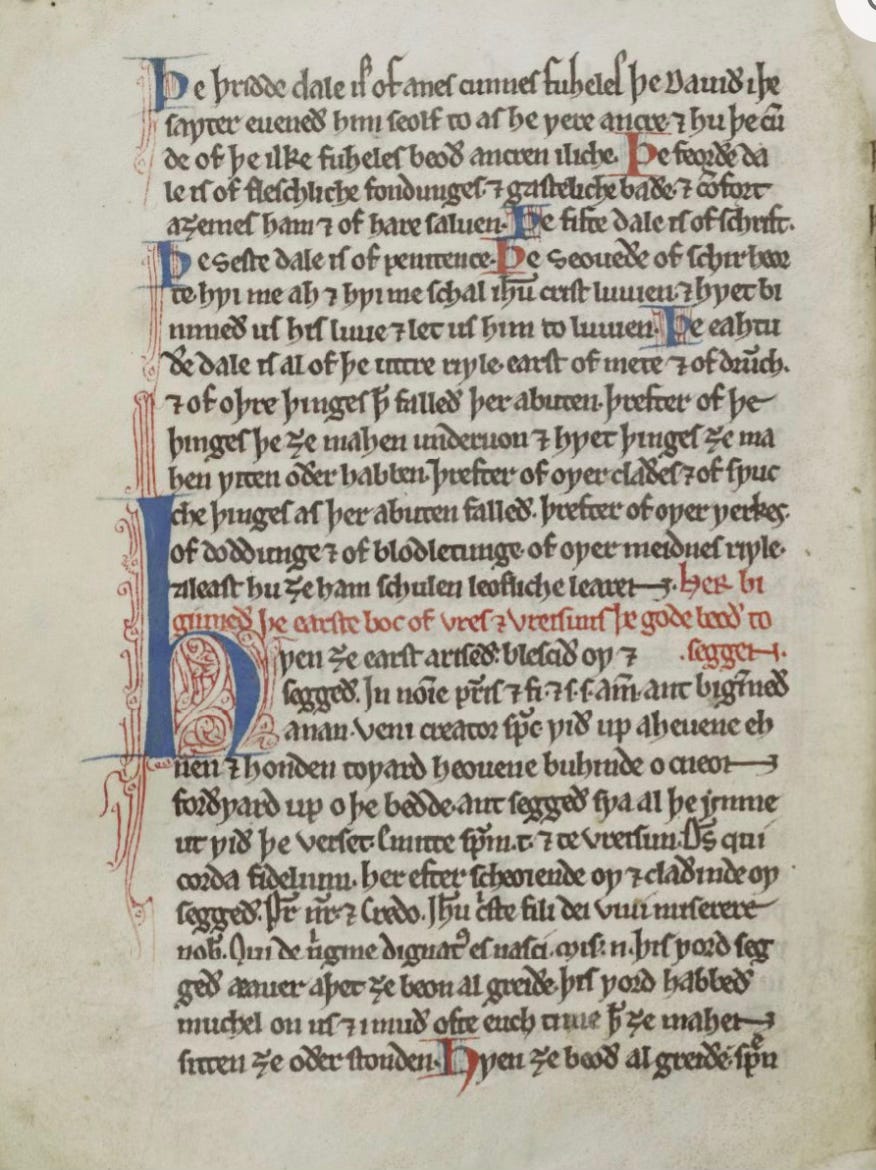 Þe þridde dale is of anes cunnes fuheles þe Dauið iþe
saƿter eueneð him seolf to as he ƿere ancre ⁊ hu þe cū
de of þe ilke fuheles beoð ancren iliche. Þe feorðe da
le is of fleschliche fondunges ⁊ gasteliche baðe ⁊ cōfort
aȝeines ham ⁊ of hare saluen. Þe fifte dale is of schrift.
Þe seste dale is of penitence. Þe seoueðe of schir heor
te hƿi me ah ⁊ hƿi me schal ihū crist luuien ⁊ hƿet bi
nimeð us his luue ⁊ let us him to luuien. Þe eahtu
ðe dale is al of þe uttre riƿle. earst of mete ⁊ of drūch.
⁊ of oþre þinges ꝥ falleð þer abuten. þrefter of þe
þinges þe ȝe mahen underuon ⁊ hƿet þinges ȝe ma
hen ƿiten oðer habben. þrefter of oƿer claðes ⁊ of sƿuc
che þinges as þer abuten falleð. þrefter of oƿer ƿerkes.
of doddunge ⁊ of blodletunge. of oƿer meidnes riƿle.
aleast hu ȝe ham schulen leofliche learen. her bi
ginneð þe earste boc of vres ⁊ vreisuns þe gode beoð to
hƿen ȝe earst ariseð. blescið oƿ ⁊ .seggen.
seggeð. In noīe pr̄is ⁊ fi. ⁊ s. s. am̄. ant bigīneð
anan. veni creator spc̄ ƿið up aheuene eh
nen ⁊ honden toƿard heouene buhinde o cneon
forðƿard up o þe bedde. ant seggeð sƿa al þe ymne
ut ƿið þe verset. Emitte spm̄. t. ⁊ te vreisun. Ds̄ qui
corda fidelium. her efter scheoiende oƿ ⁊ claðinde oƿ
seggeð. Pr̄ nr̄. ⁊ Credo. Jhū c͛ste fili dei viui miserere
nob̄. Qui de uͥgine dignatꝰ es nasci. mis. n. þis ƿord seg
geð aauer aþet ȝe beon al greiðe. þis ƿord habbeð
muchel on us ⁊ i muð ofte euch time ꝥ ȝe mahen
sitten ȝe oðer stonden. Hƿen ȝe beoð al greiðe. spēn